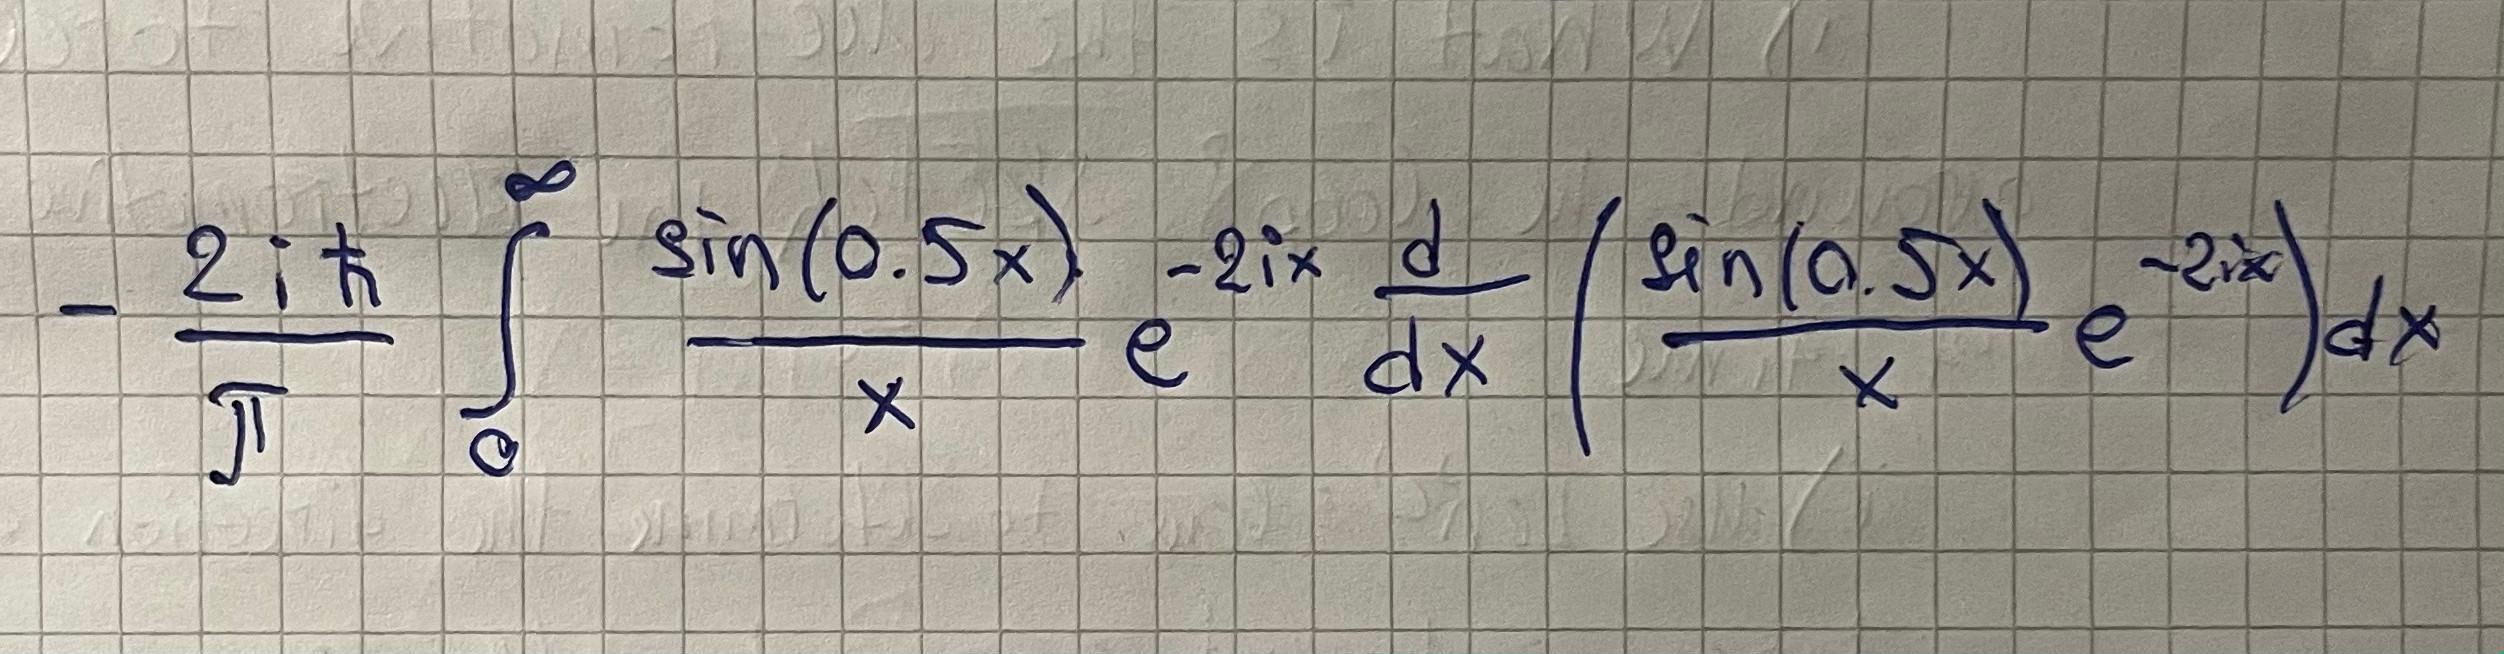 -\frac{2i\hbar}{\pi} \int_{0}^{\infty} \frac{\sin(0.5x)}{x} e^{-2ix} \frac{d}{dx} \left( \frac{\sin(0.5x)}{x} e^{-2ix} \right) dx